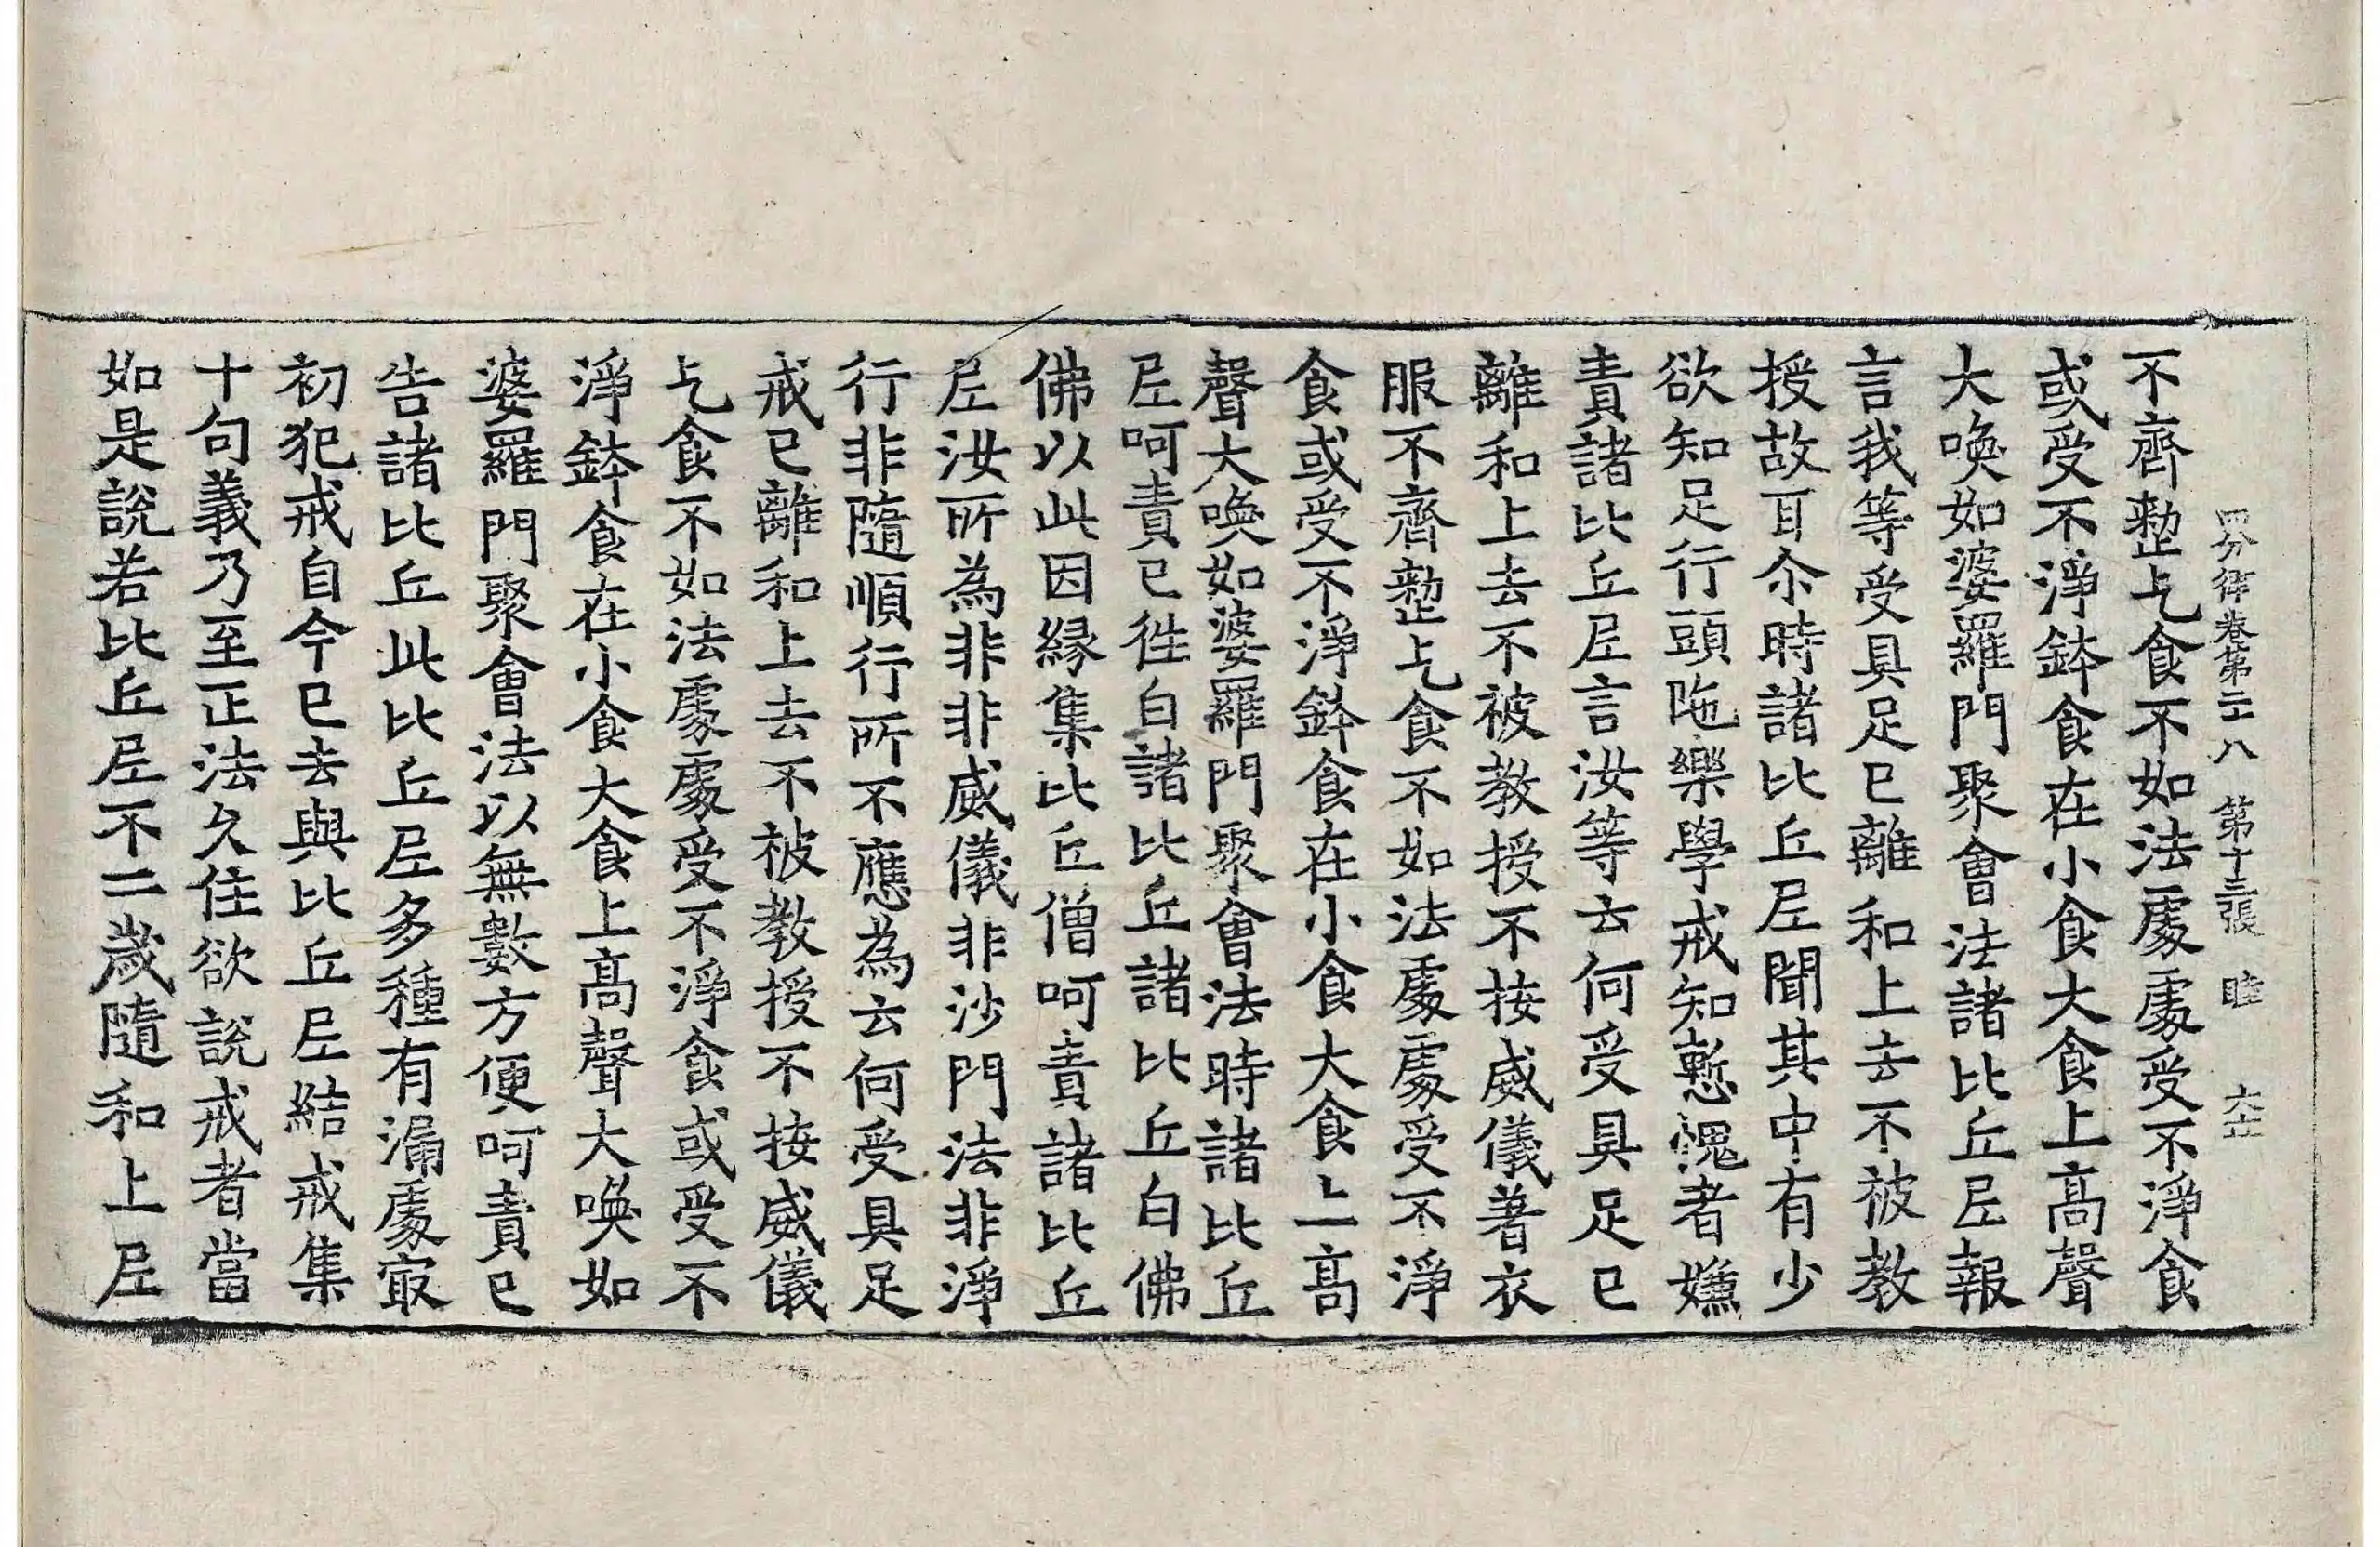 四分律卷第二十八　第十三張　睦　六正
不齊整乞食不如法處處受不淨食
或受不淨鉢食在小食大食上高聲
大喚如婆羅門聚會法諸比丘尼報
言我等受具足已離和上去不被教
授故耳尒時諸比丘尼聞其中有少
欲知足行頭陁樂學戒知慙愧者嫌
責諸比丘尼言汝等云何受具足已
離和上去不被教授不按威儀著衣
服不齊整乞食不如法處處受不淨
食或受不淨鉢食在小食大食上高
聲大喚如婆羅門聚會法時諸比丘
尼呵責已徃白諸比丘諸比丘白佛
佛以此因緣集比丘僧呵責諸比丘
尼汝所為非非威儀非沙門法非淨
行非隨順行所不應為云何受具足
戒已離和上去不被教授不按威儀
乞食不如法處處受不淨食或受不
淨鉢食在小食大食上高聲大喚如
婆羅門聚會法以無數方便呵責已
告諸比丘此比丘尼多種有漏處冣
初犯戒自今已去與比丘尼結戒集
十句義乃至正法久住欲說戒者當
如是說若比丘尼不二歲隨和上尼